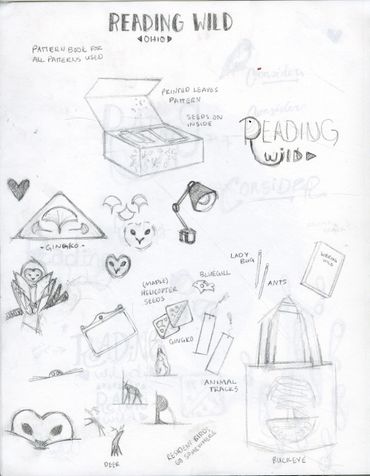 READING WILD
OHIO
PATTERN BOOK FOR
ALL PATTERNS USED
PRINTED LEAVES
PATTERN
SEEDS ON
INSIDE
READING
WILD
CONSIDER
GINGKO
(MAPLE)
HELICOPTER
SEEDS
BLUEGILL
LADY
BUG
ANTS
GINGKO
ANIMAL
TRACKS
DEER
BUCKEYE